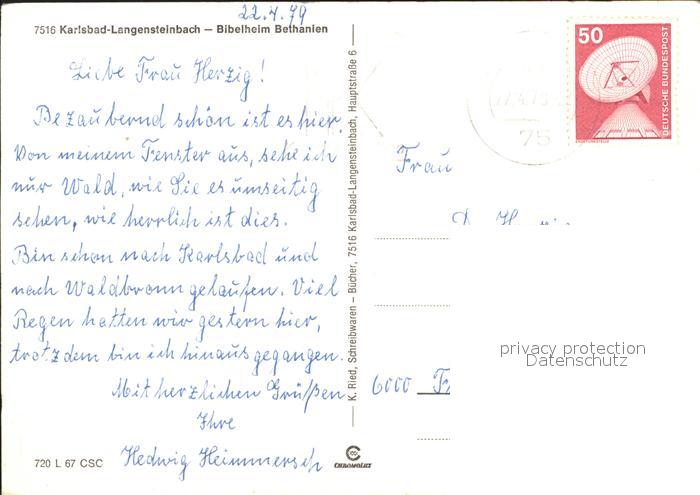 22.4.79
7516 Karlsbad-Langensteinbach – Bibelheim Bethanien
Liebe Frau Herzig!
Bezaubernd schön ist es hier.
Von meinem Fenster aus, sehe ich
nur Wald, wie Sie es umseitig
sehen, wie herrlich ist dies.
Bin schon nach Karlsbad und
nach Waldbronn gelaufen. Viel
Regen hatten wir gestern hier,
trotzdem bin ich hinausgegangen.
Mit herzlichen Grüßen
Ihre
Hedwig Heimmersch
720 L 67 CSC
K. Ried, Schreibwaren – Bücher, 7516 Karlsbad-Langensteinbach, Hauptstraße 6
CHROMOLUX
50
DEUTSCHE BUNDESPOST
ERDEFUNKSTELLE
75
Frau
6000
privacy protection
Datenschutz